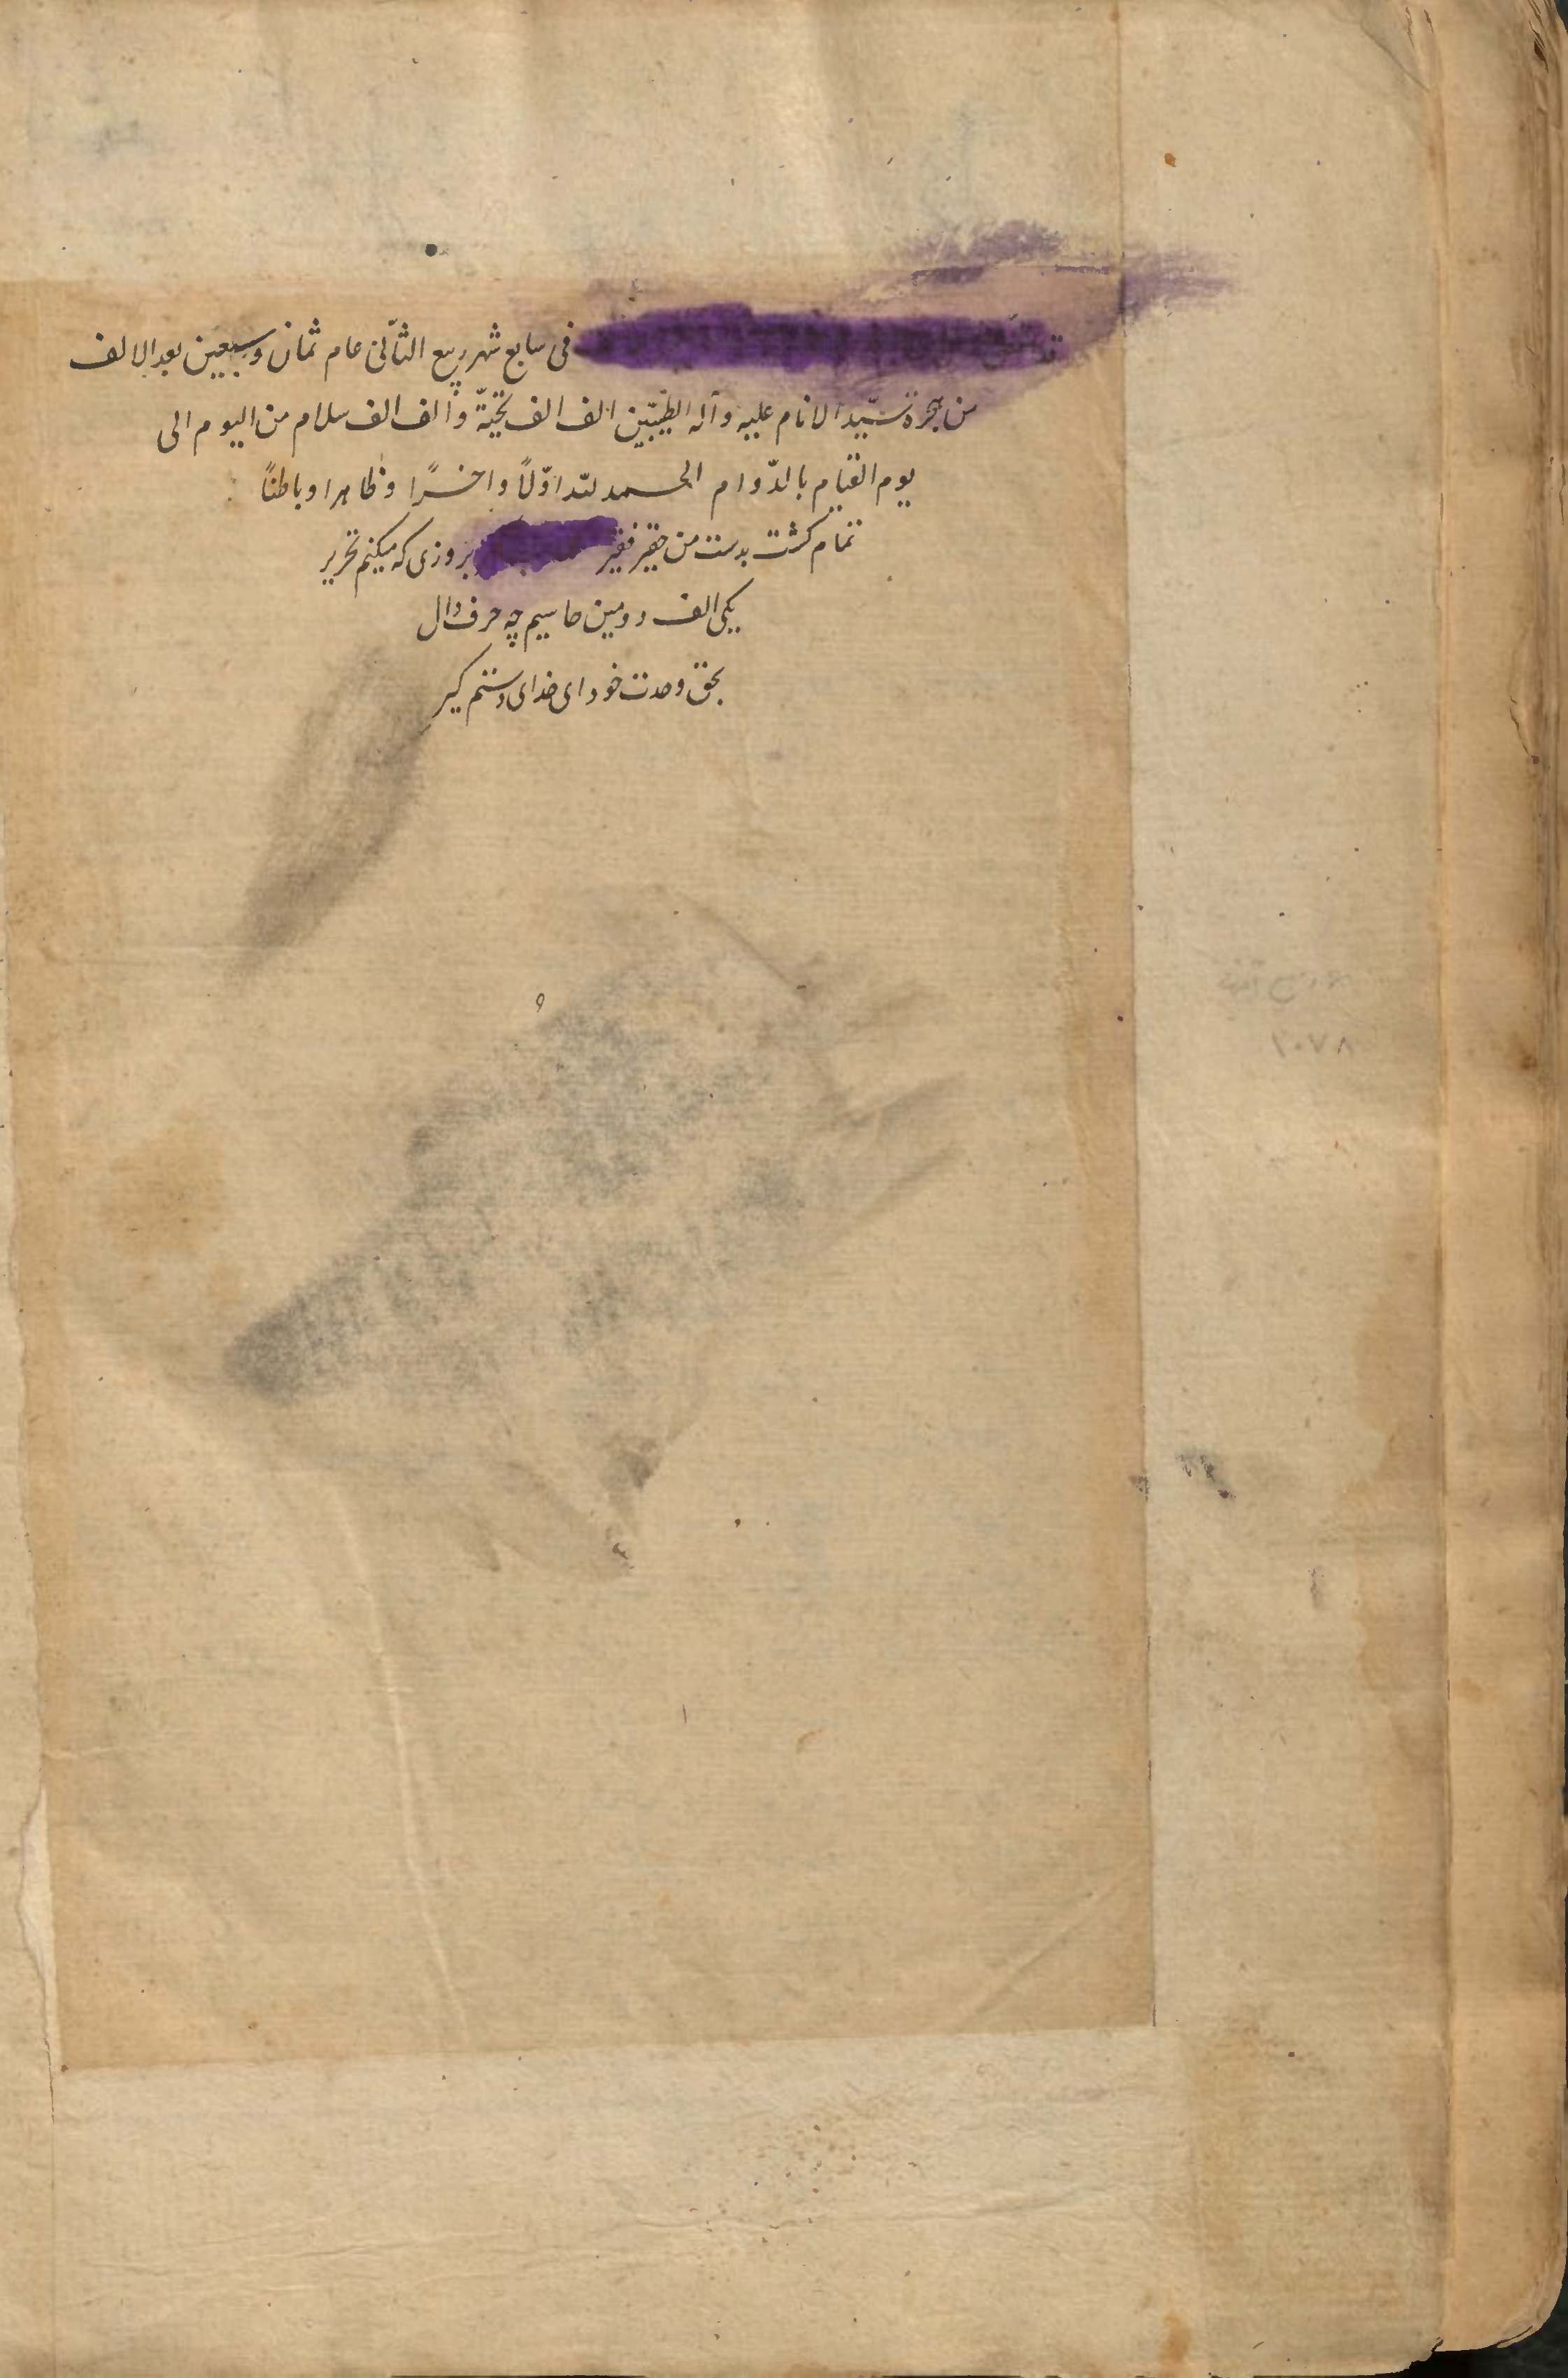 في سابع شهر ربيع الثّاني عام ثمان وسبعين بعد الالف
من هجرة سيّد الانام عليه وآله الطيّبين الف الف تحيّة والف الف سلام من اليوم الى
يوم القيام بالدّوام الحمد لله اوّلاً واخرًا وظاهرا وباطنًا
تمام کشت بدست من حقیر فقیر بروزی که میکنم تحریر
یکی الف دومین حا سیم چه حرف دال
بحق وحدت خود ای خدای دستم کیر
۱۰۷۸